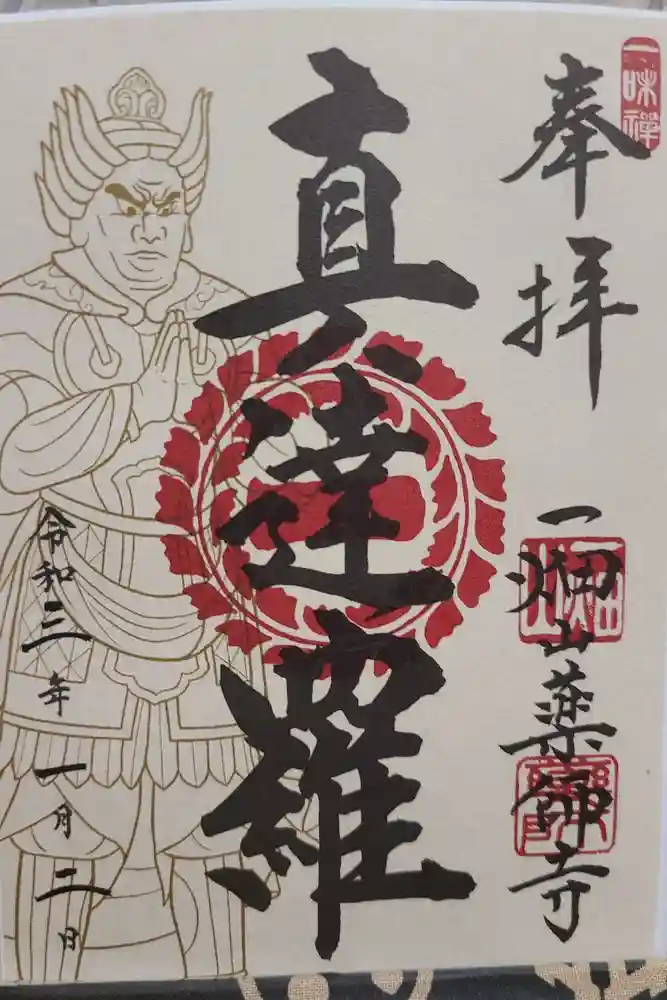 一味禅
奉拝
一畑山薬師寺
真達羅
令和三年一月二日